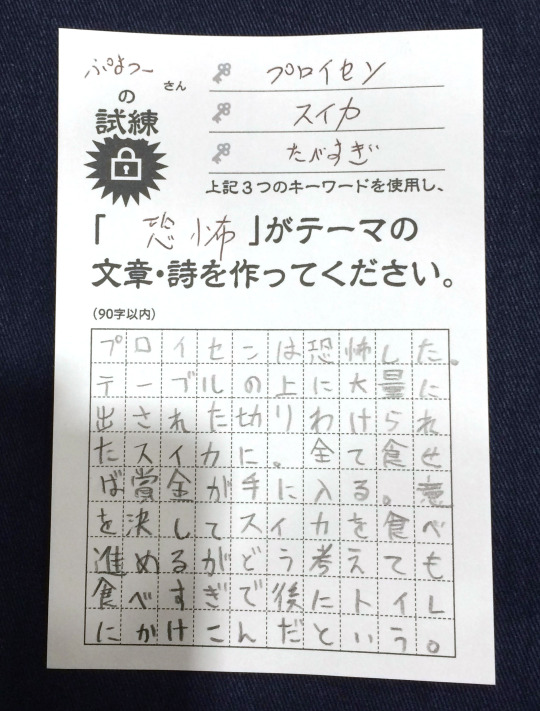 ぷよつー さん
の
試練
プロイセン
スイカ
たべすぎ
上記3つのキーワードを使用し、
「恐怖」がテーマの
文章・詩を作ってください。
(90字以内)
プロイセンは恐怖した。
テーブルの上に大量に
出された切りわけられ
たスイカに。全て食せ
ば賞金が手に入る。意
を決してスイカを食べ
進めるがどう考えても
食べすぎで後にトイレ
にかけこんだという。